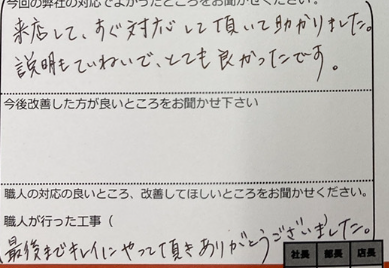 今回の弊社の対応でよかったところをお聞かせください。
来店して、すぐ対応して頂いて助かりました。
説明もていねいで、とても良かったです。
今後改善した方が良いところをお聞かせ下さい
職人の対応の良いところ、改善してほしいところをお聞かせください。
職人が行った工事（
最後までキレイにやって頂きありがとうございました。
社長 部長 店長